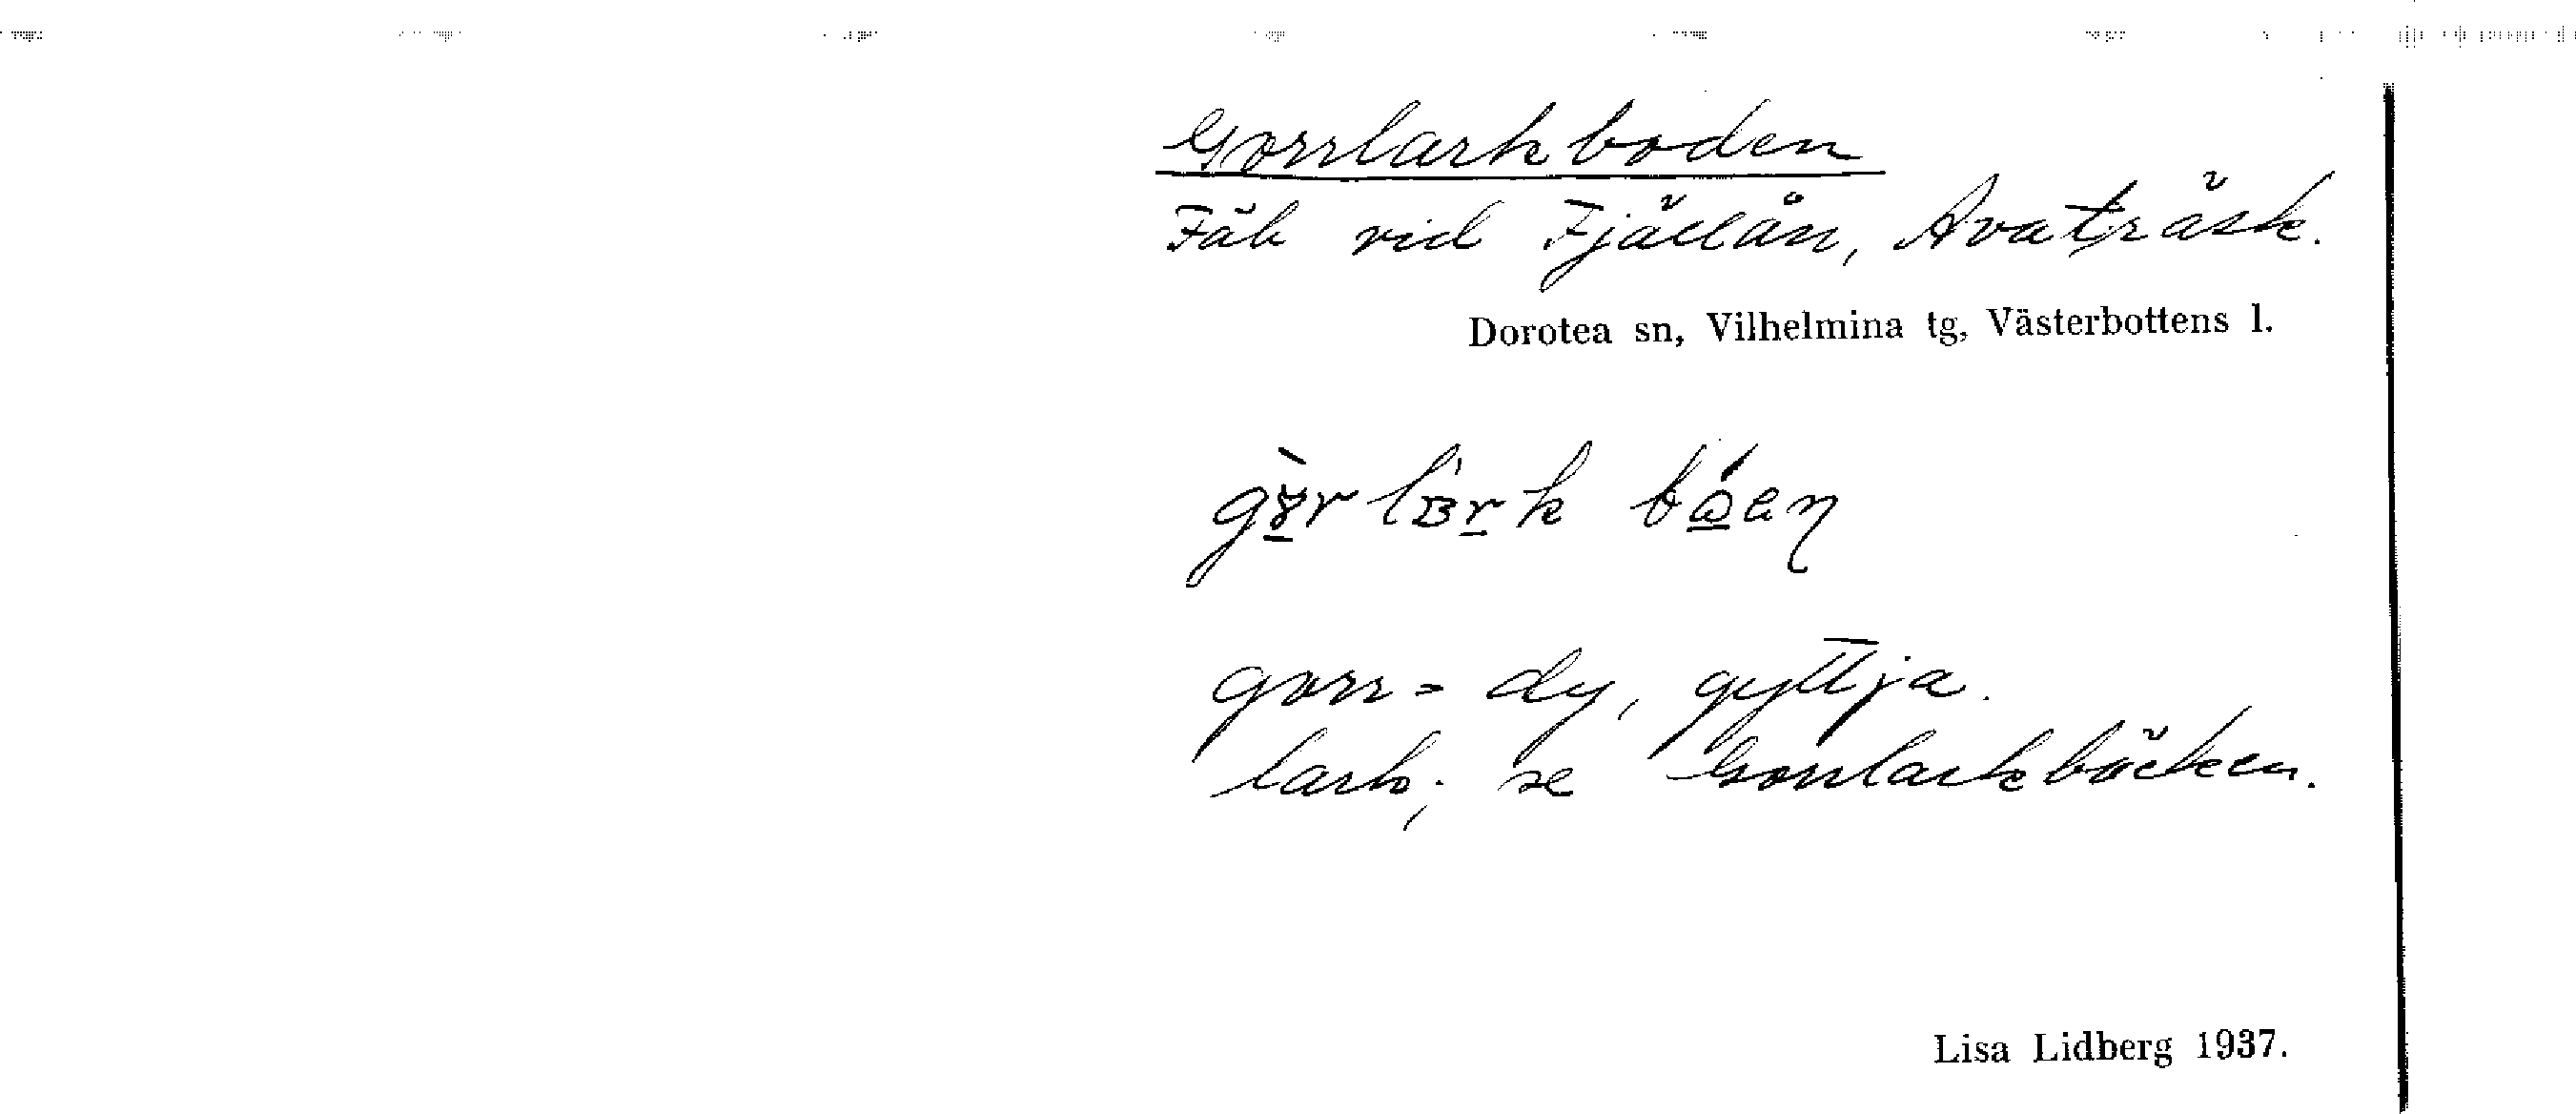 Gorrlarkboden
Fäb vid Fjällån, Avaträsk.
Dorotea sn, Vilhelmina tg, Västerbottens l.
gorr = dy, gyttja.
lark; se Gorrlarkbäcken.
Lisa Lidberg 1937.